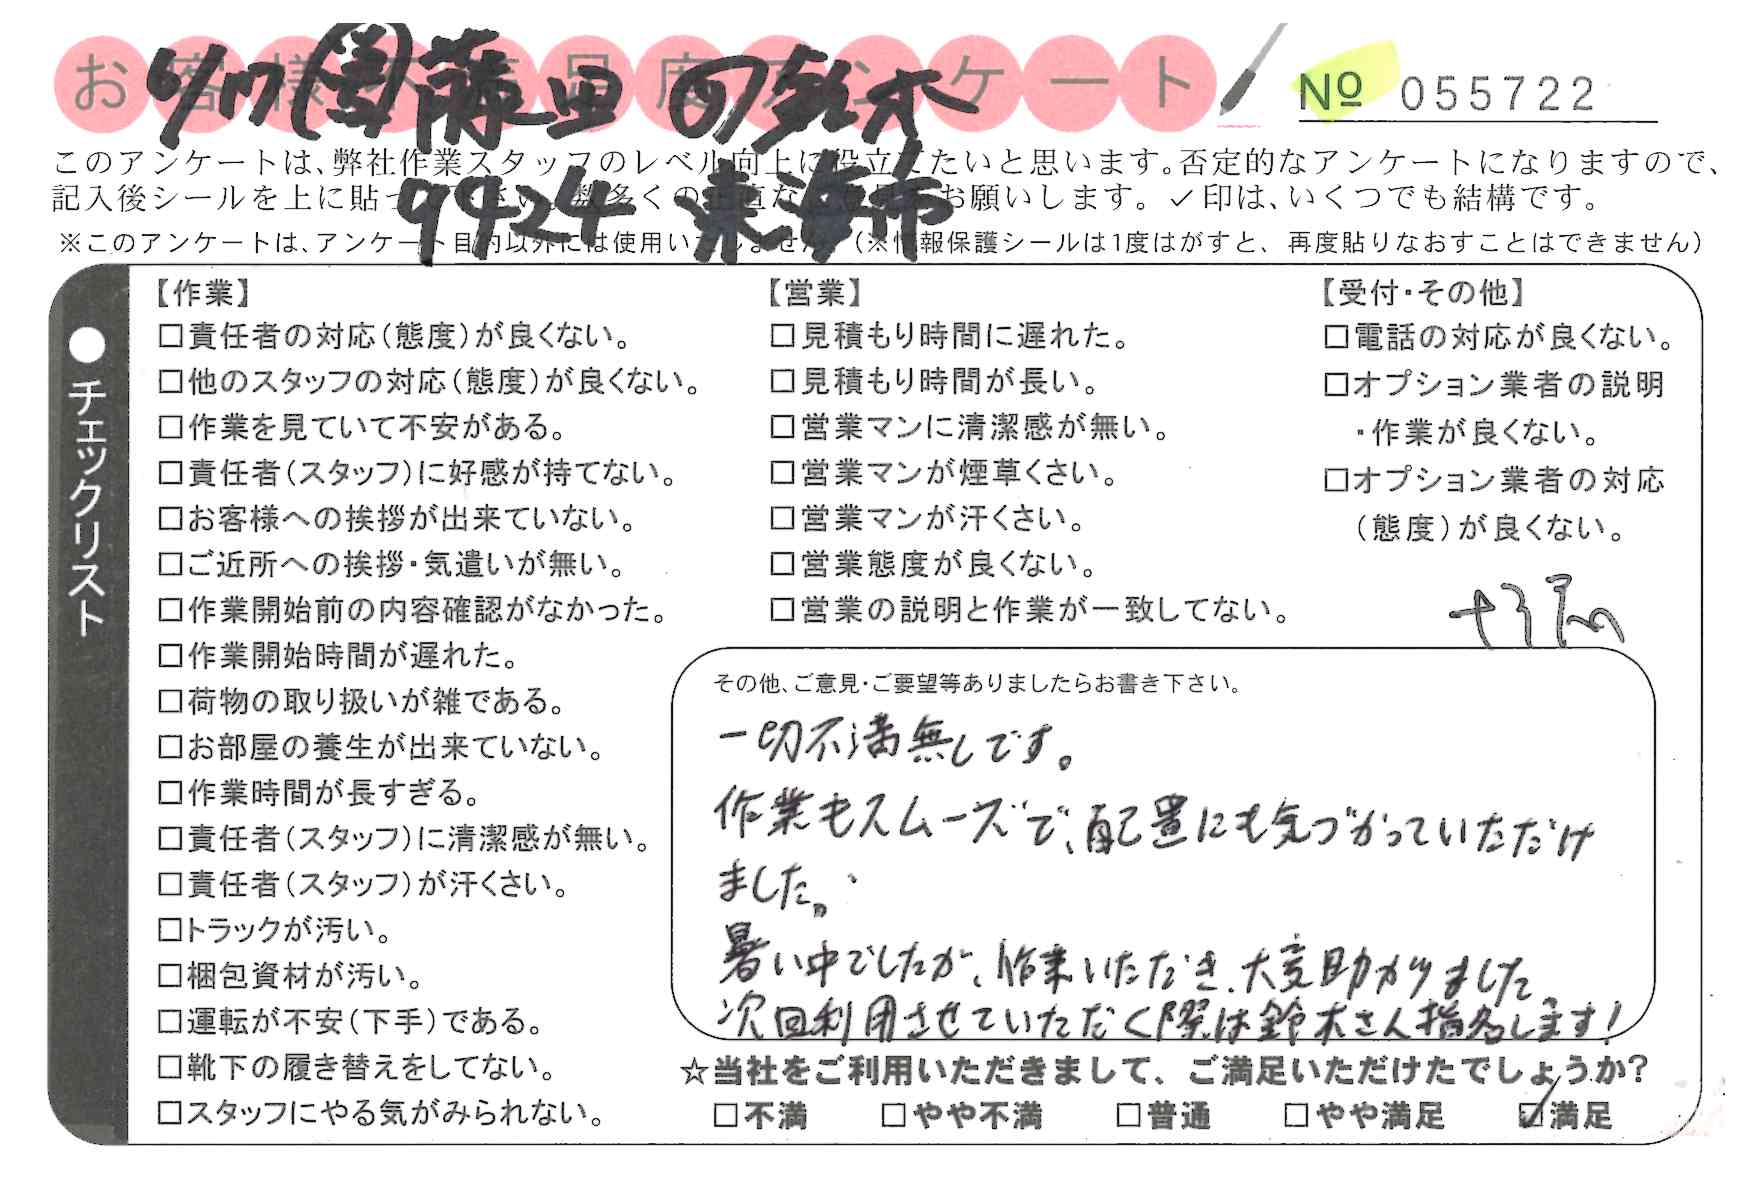 お客様不満足度アンケート
№ 055722
藤田 鈴木
9424 東海市
このアンケートは、弊社作業スタッフのレベル向上に役立てたいと思います。否定的なアンケートになりますので、
記入後シールを上に貼って下さい。数多くの正直なご意見をお願いします。✓印は、いくつでも結構です。
※このアンケートは、アンケート目的以外には使用いたしません。（※情報保護シールは1度はがすと、再度貼りなおすことはできません）
●チェックリスト
【作業】
□責任者の対応（態度）が良くない。
□他のスタッフの対応（態度）が良くない。
□作業を見ていて不安がある。
□責任者（スタッフ）に好感が持てない。
□お客様への挨拶が出来ていない。
□ご近所への挨拶・気遣いが無い。
□作業開始前の内容確認がなかった。
□作業開始時間が遅れた。
□荷物の取り扱いが雑である。
□お部屋の養生が出来ていない。
□作業時間が長すぎる。
□責任者（スタッフ）に清潔感が無い。
□責任者（スタッフ）が汗くさい。
□トラックが汚い。
□梱包資材が汚い。
□運転が不安（下手）である。
□靴下の履き替えをしてない。
□スタッフにやる気がみられない。
【営業】
□見積もり時間に遅れた。
□見積もり時間が長い。
□営業マンに清潔感が無い。
□営業マンが煙草くさい。
□営業マンが汗くさい。
□営業態度が良くない。
□営業の説明と作業が一致してない。
【受付・その他】
□電話の対応が良くない。
□オプション業者の説明
・作業が良くない。
□オプション業者の対応
（態度）が良くない。
その他、ご意見・ご要望等ありましたらお書き下さい。
一切不満無しです。
作業もスムーズで、配置にも気づかっていただけ
ました。
暑い中でしたが、作業いただき、大変助かりました。
次回利用させていただく際は鈴木さん指名します！
☆当社をご利用いただきまして、ご満足いただけたでしょうか？
□不満 □やや不満 □普通 □やや満足 ☑満足